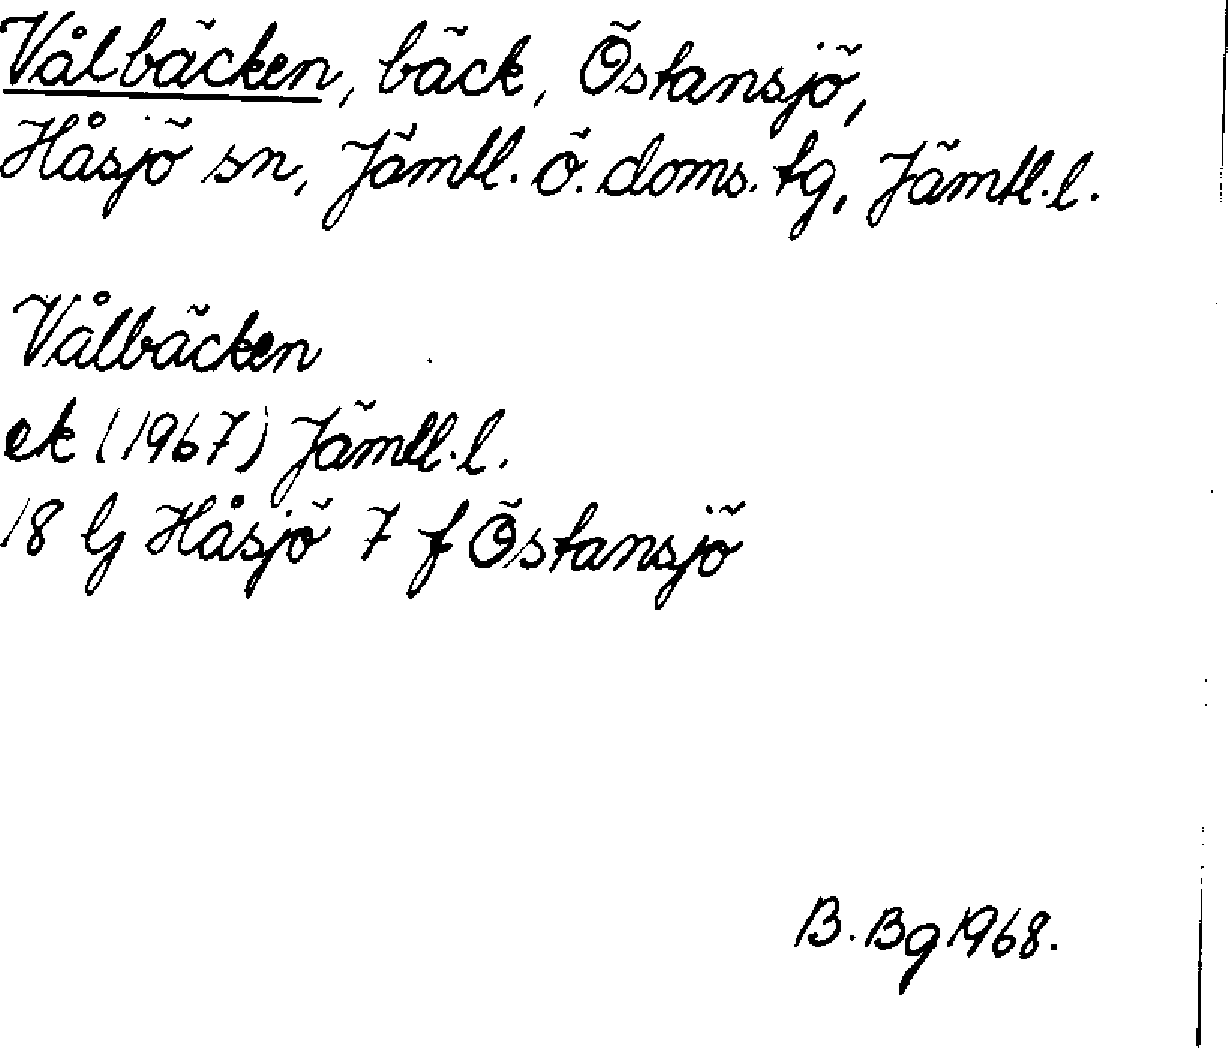 Vålbäcken, bäck, Östansjö,
Håsjö sn, Jämtl. ö. doms. tg, Jämtl. l.
Vålbäcken
ek (1967) Jämtl. l.
18 G Håsjö 7 f Östansjö
B. Bg 1968.